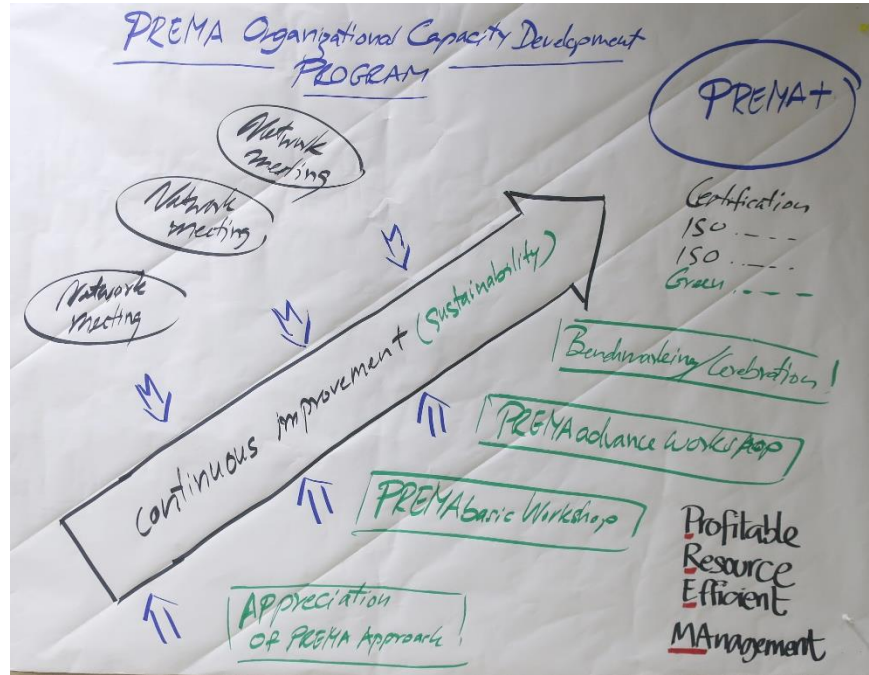 PREMA Organizational Capacity Development
PROGRAM
PREMA+
Network
meeting
Network
meeting
Network
meeting
Certification
ISO .. _ _ _
ISO .. _ _ .
Green . _ _ _
continuous improvement (sustainability)
Benchmarking/Cerebration !
PREMA advance workshop
PREMA basic Workshop
Appreciation
of PREMA Approach !
Profitable
Resource
Efficient
MAnagement